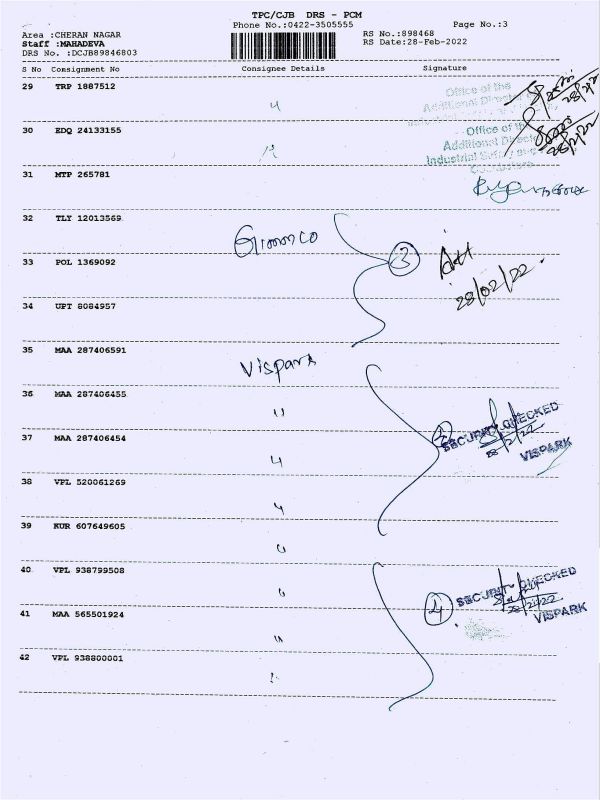 TPC/CJB DRS - PCM
Phone No.:0422-3505555 Page No.:3
Area :CHERAN NAGAR RS No.:898468
Staff :MAHADEVA RS Date:28-Feb-2022
DRS No. :DCJB89846803
S No Consignment No Consignee Details Signature
29 TRP 1887512
Office of the
Additional Director
28/2/22
30 EDQ 24133155
Office of the
Additional Director
Industrial Safety and
28/2/22
31 MTP 265781
32 TLY 12013569
Gimmco
33 POL 1369092 3
28/02/22
34 UPT 8084957
35 MAA 287406591
Vispark
36 MAA 287406455 "
SECURITY CHECKED
37 MAA 287406454 "
28/2/22
VISPARK
38 VPL 520061269 "
39 KUR 607649605 "
40 VPL 938799508 "
4 SECURITY CHECKED
28/2/22
41 MAA 565501924 "
VISPARK
42 VPL 938800001 "